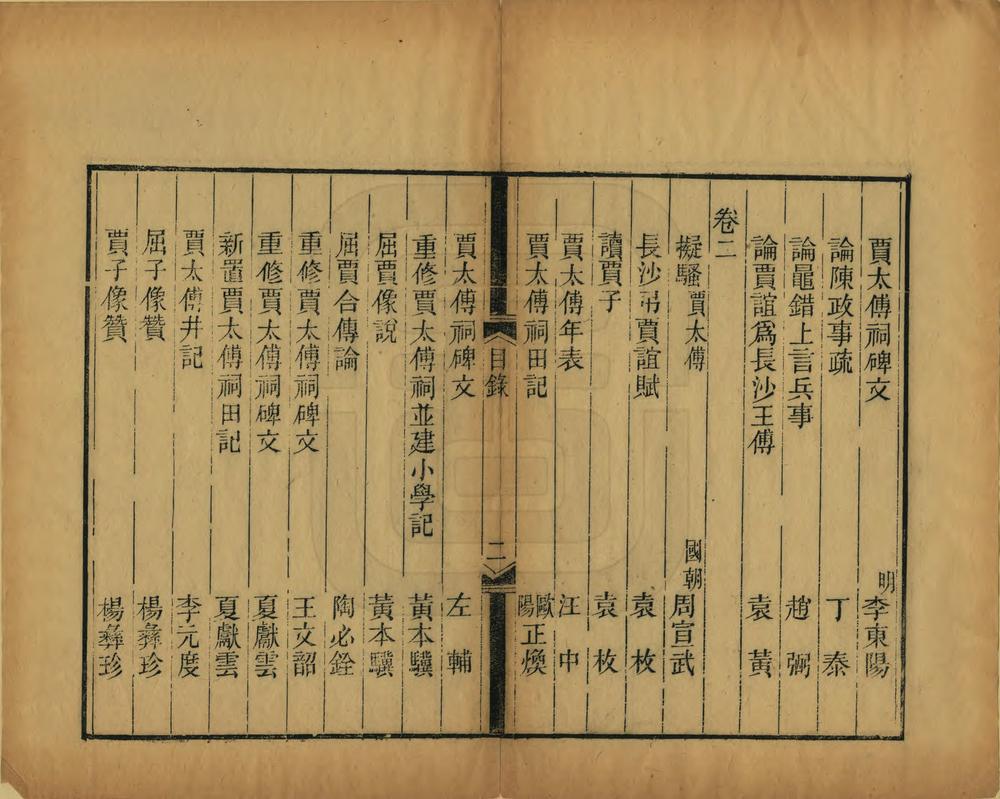 賈太傅祠碑文 明李東陽
論陳政事疏 丁泰
論鼂錯上言兵事 趙弼
論賈誼爲長沙王傅 袁黃
卷二
擬騷賈太傅 國朝周宣武
長沙弔賈誼賦 袁枚
讀賈子 袁枚
賈太傅年表 汪中
賈太傅祠田記 歐陽正煥
目錄 二
賈太傅祠碑文 左輔
重修賈太傅祠並建小學記 黃本驥
屈賈像說 黃本驥
屈賈合傳論 陶必銓
重修賈太傅祠碑文 王文韶
重修賈太傅祠碑文 夏獻雲
新置賈太傅祠田記 夏獻雲
賈太傅井記 李元度
屈子像贊 楊彝珍
賈子像贊 楊彝珍